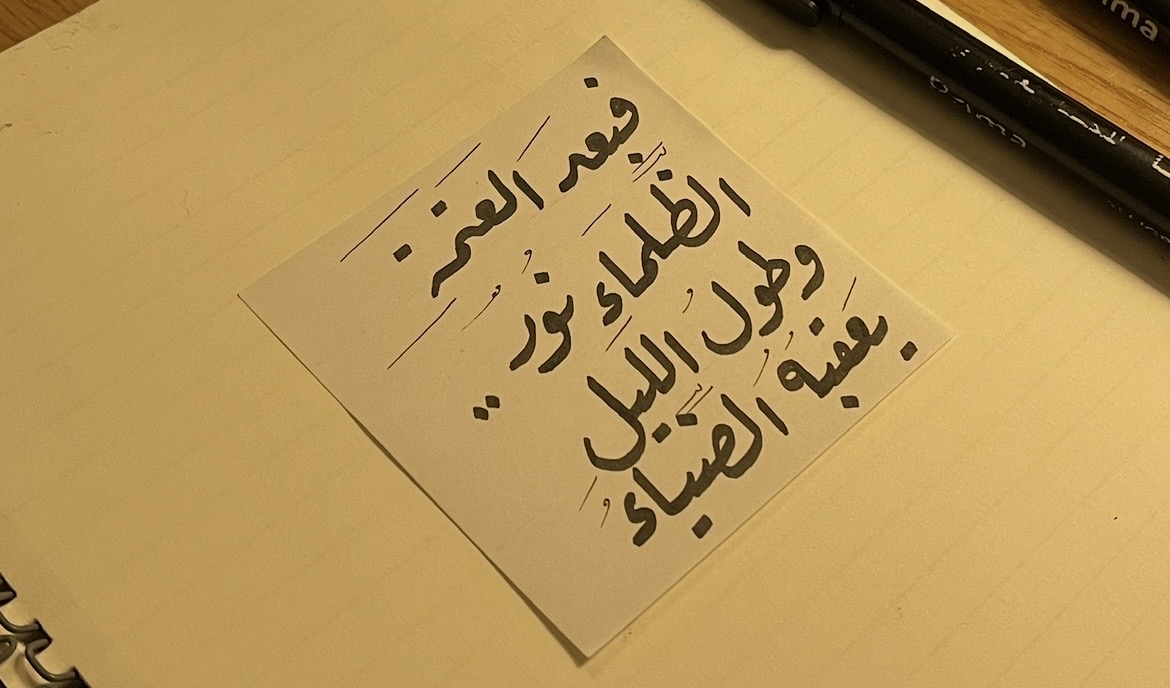 فبعد العتمة
الظّلماءِ نُورٌ ..
وطُول الليلِ
يَعقُبُهُ الضّياءُ